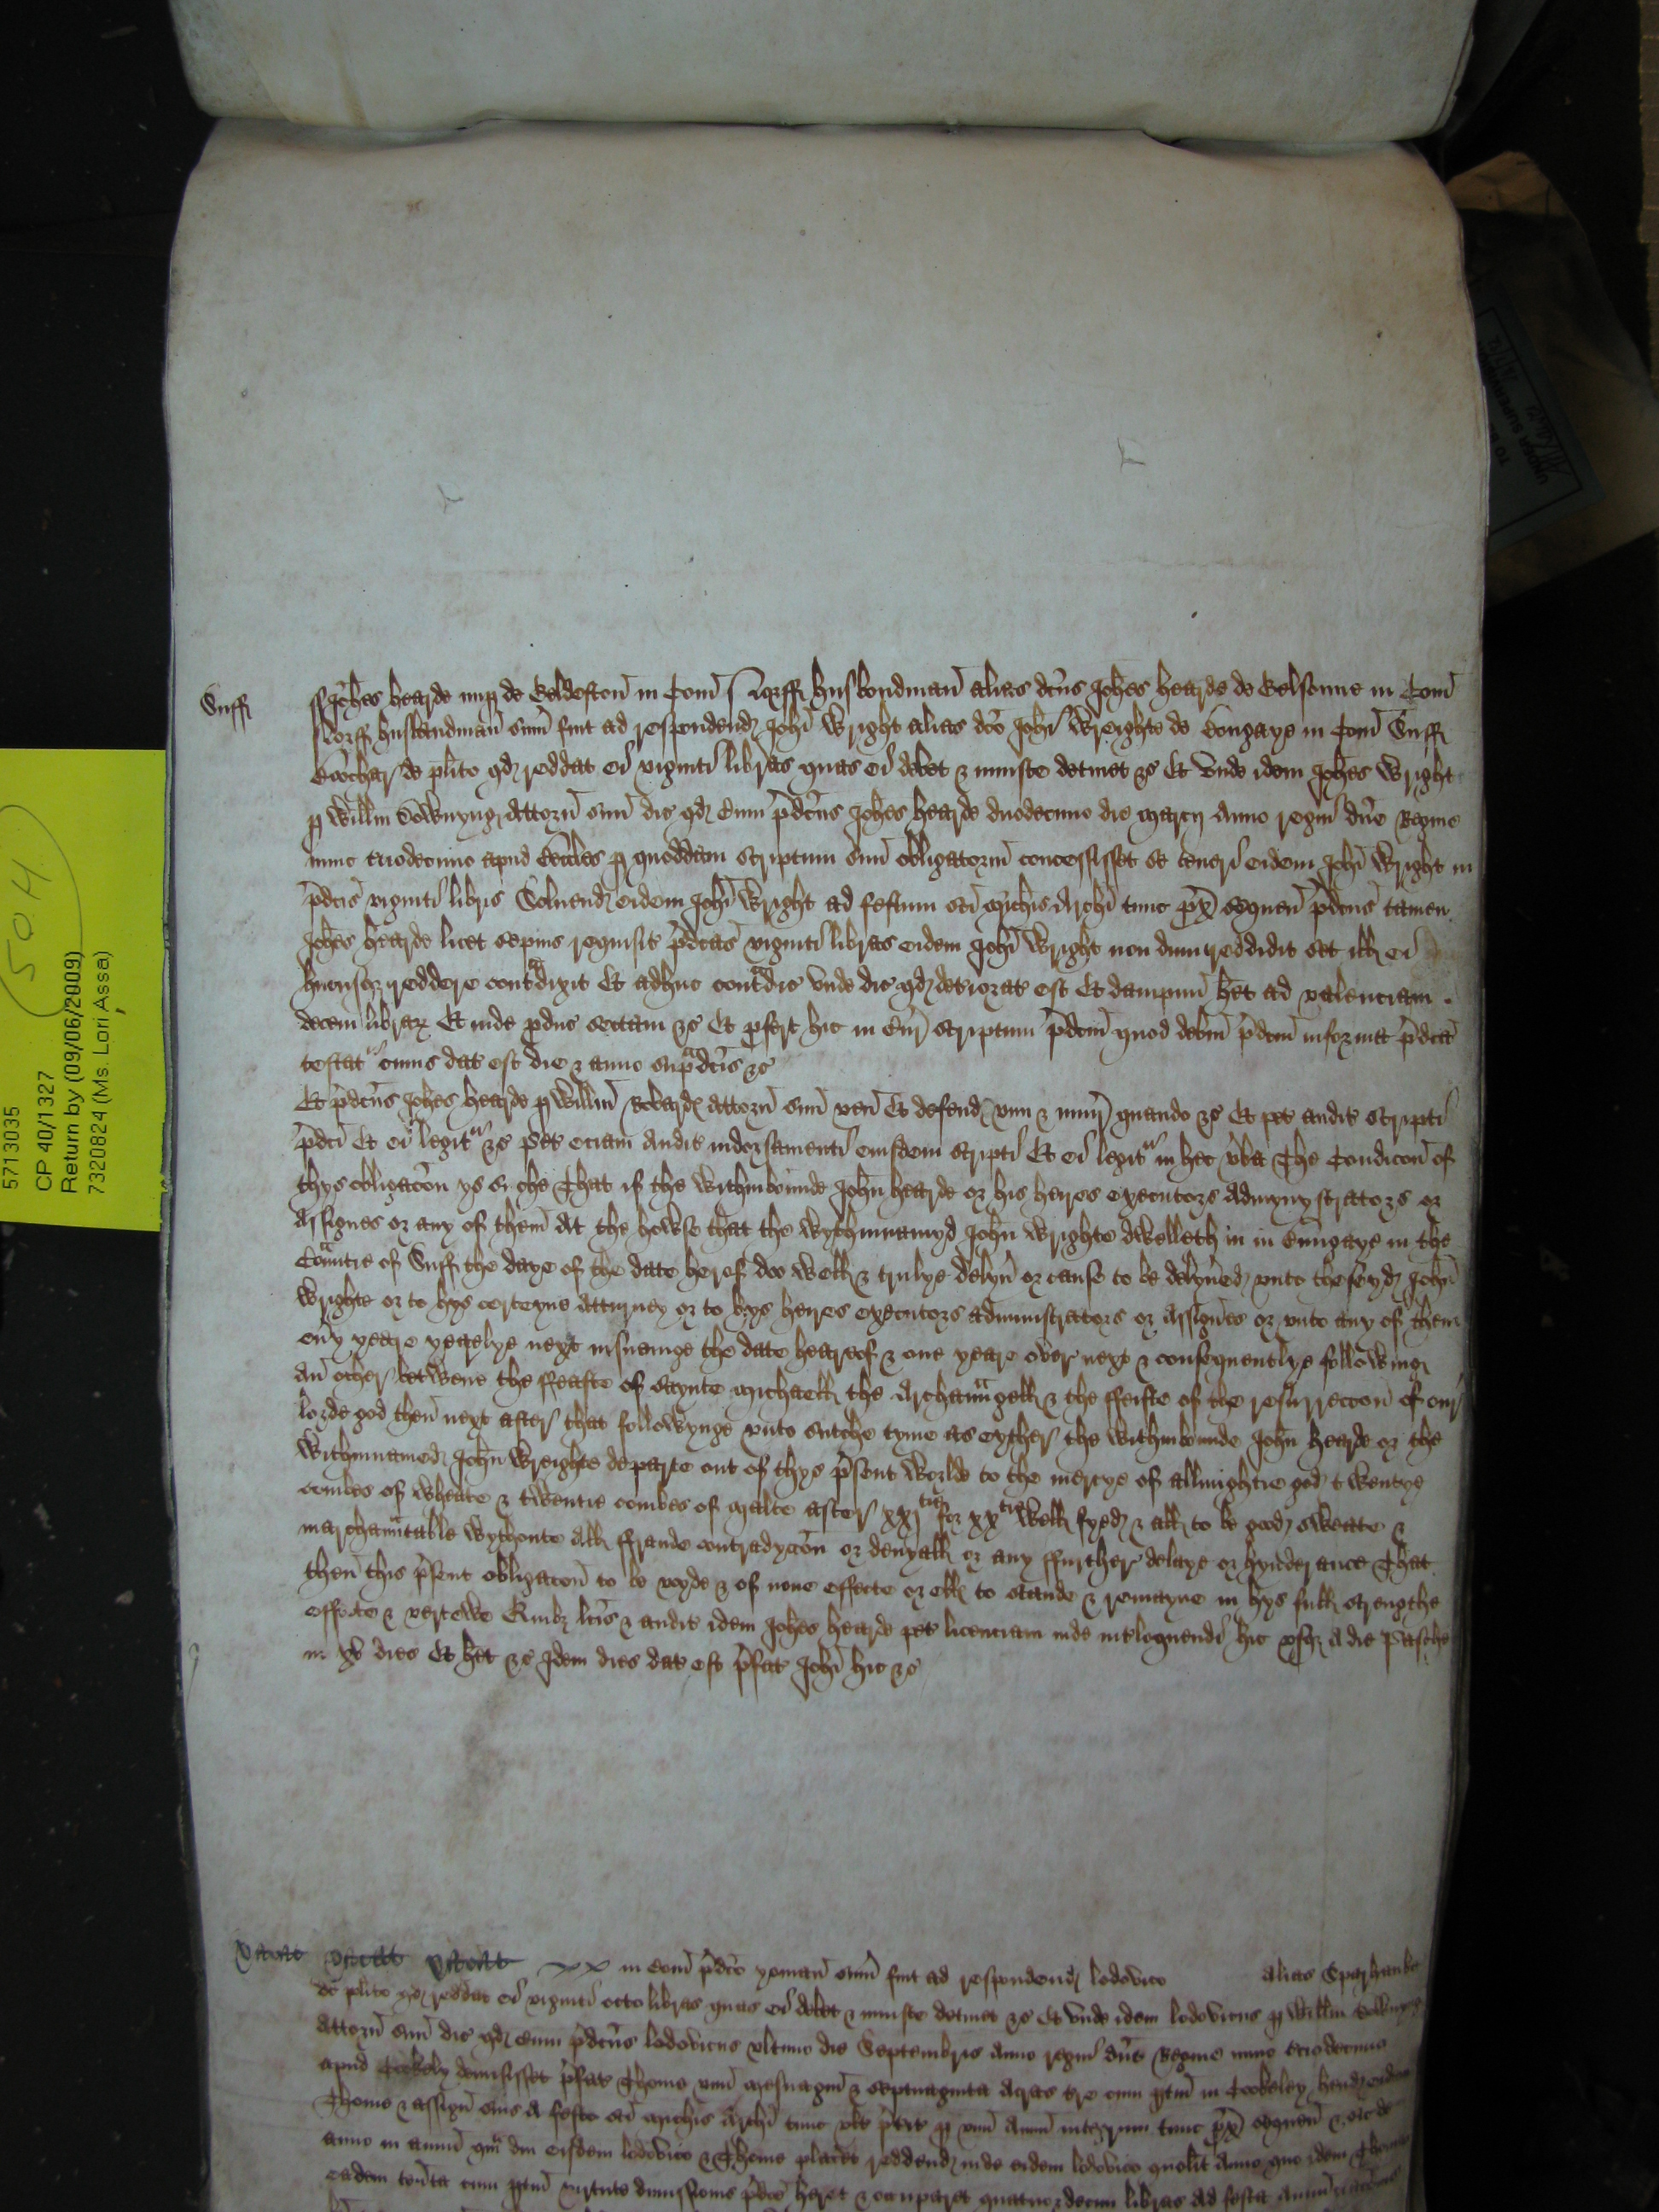 5713035
CP 40/1327
Return by (09/06/2009)
7320824 (Ms. Lori Assa)
504
Suff
Johes hearde nup de in Com Norff husbondman alias dcus Johes hearde de in Com
Norff husbandman sum fuit ad respondend Johi Wright alias dco Johi Wreighte de Bongaye in Com Suff
de plito qd reddat ei viginti libras quas ei debet & iniuste detinet &c Et unde idem Johes Wright
p Willm attorn suu dic qd cum pdcus Johes hearde duodecimo die Marcij anno regni dne Regine
nunc terciodecimo apud Beccles p quoddam scriptum suu obligatorium concessisset se teneri eidem Johi Wright in
pdcis viginti libris Solvend eidem Johi Wright ad festum sci Michis Archi tunc px sequen pdcus tamen
Johes hearde licet sepius requisit pdcas viginti libras eidem Johi Wright non dum reddidit set ill ei
hucusq reddere contradixit Et adhuc contradic unde dic qd deteriorat est Et dampnu het ad valenciam
decem librar Et inde produc sectam &c Et profert hic in Cur scriptum pdcm quod debm pdcm in forma pdca
testat cuius dat est die & anno supradcis &c
Et pdcus Johes hearde p Willm attorn suu ven Et defend vim & iniur quando &c Et pet audit scripti
pdci Et ei legit &c pet eciam audit indorsamenti eiusdem scripti Et ei legit in hec vba The Condicon of
thys obligacon ys suche That if the withinbounde John hearde or his heires executors admynystrators or
Assignes or any of them At the howse that the wythinnamyd John Wrighte dwelleth in in Bungaye in the
Countie of Suff the daye of the date herof doo well & trulye delyv or cause to be delyved unto the seyd John
Wrighte or to hys certeyne Atturney or to hys heires executors administrators or Assignes or unto any of them
evy yeare yearlye next insuainge the date heareof & one yeare over next & consequentlye followinge
An other betwene the ffeaste of saynte michaell the Archaungell & the ffeiste of the resurreccon of our
lorde god then next after that followynge unto sutche tyme as eyther the withinbounde John hearde or the
withinnamed John Wreighte departe out of thys psent worlde to the mercye of allmightie god twentye
combes of wheate & twentie combes of malte after xxj for xx well fyed & all to be good sweate &
marchauntable wythoute all ffraude contradyccon or denyall or any ffurther delaye or hynderance That
then this psent obligacon to be voyde & of none effecte or ell to stande & remayne in hys full strengthe
effecte & vertewe Quib lcis & audit idem Johes hearde pet licenciam inde interloquendi hic usq a die Pasche
in xv dies Et het &c Idem dies dat est pfat Johi hic &c
vacat vacat vacat in com pdco yoman sum fuit ad respondend lodovico alias Sparhauke
de plito qd reddat ei viginti octo libras quas ei debet & iniuste detinet &c Et unde idem lodovicus p Willm
attorn suu dic qd cum pdcus lodovicus ultimo die Septembris anno regni dne Regine nunc terciodecimo
apud Cookeley dimisisset pfat Thome unu mesuagiu & septuaginta acras tre cum ptin in Cookeley hend eidem
Thome & assign suis a festo sci Michis Archi tunc ult pterit p unu annu integrum tunc px sequen & sic de
anno in annu qm diu eisdem lodovico & Thome placeret reddend inde eidem lodovico quolt anno quo idem Thomas
eadem tenta cum ptin virtute dimissionis pdce heret & occuparet quatuordecim libras ad festa